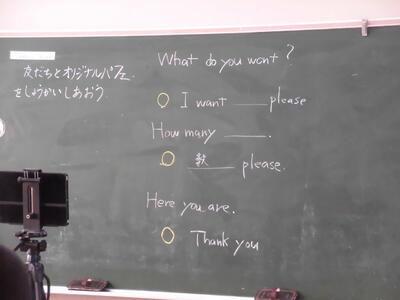 友だちとオリジナルパフェ
をしょうかいしあおう
What do you want?
I want ___ please
How many ___.
数 ___ please.
Here you are.
Thank you